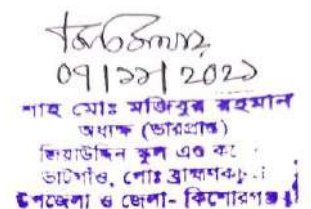 09/11/2021
শাহ মোঃ মজিবুর রহমান
অধ্যক্ষ (ভারপ্রাপ্ত)
জিয়াউদ্দিন স্কুল এন্ড কলে
ভাটগাঁও, পোঃ ব্রাহ্মণক
উপজেলা ও জেলা- কিশোরগঞ্জ।